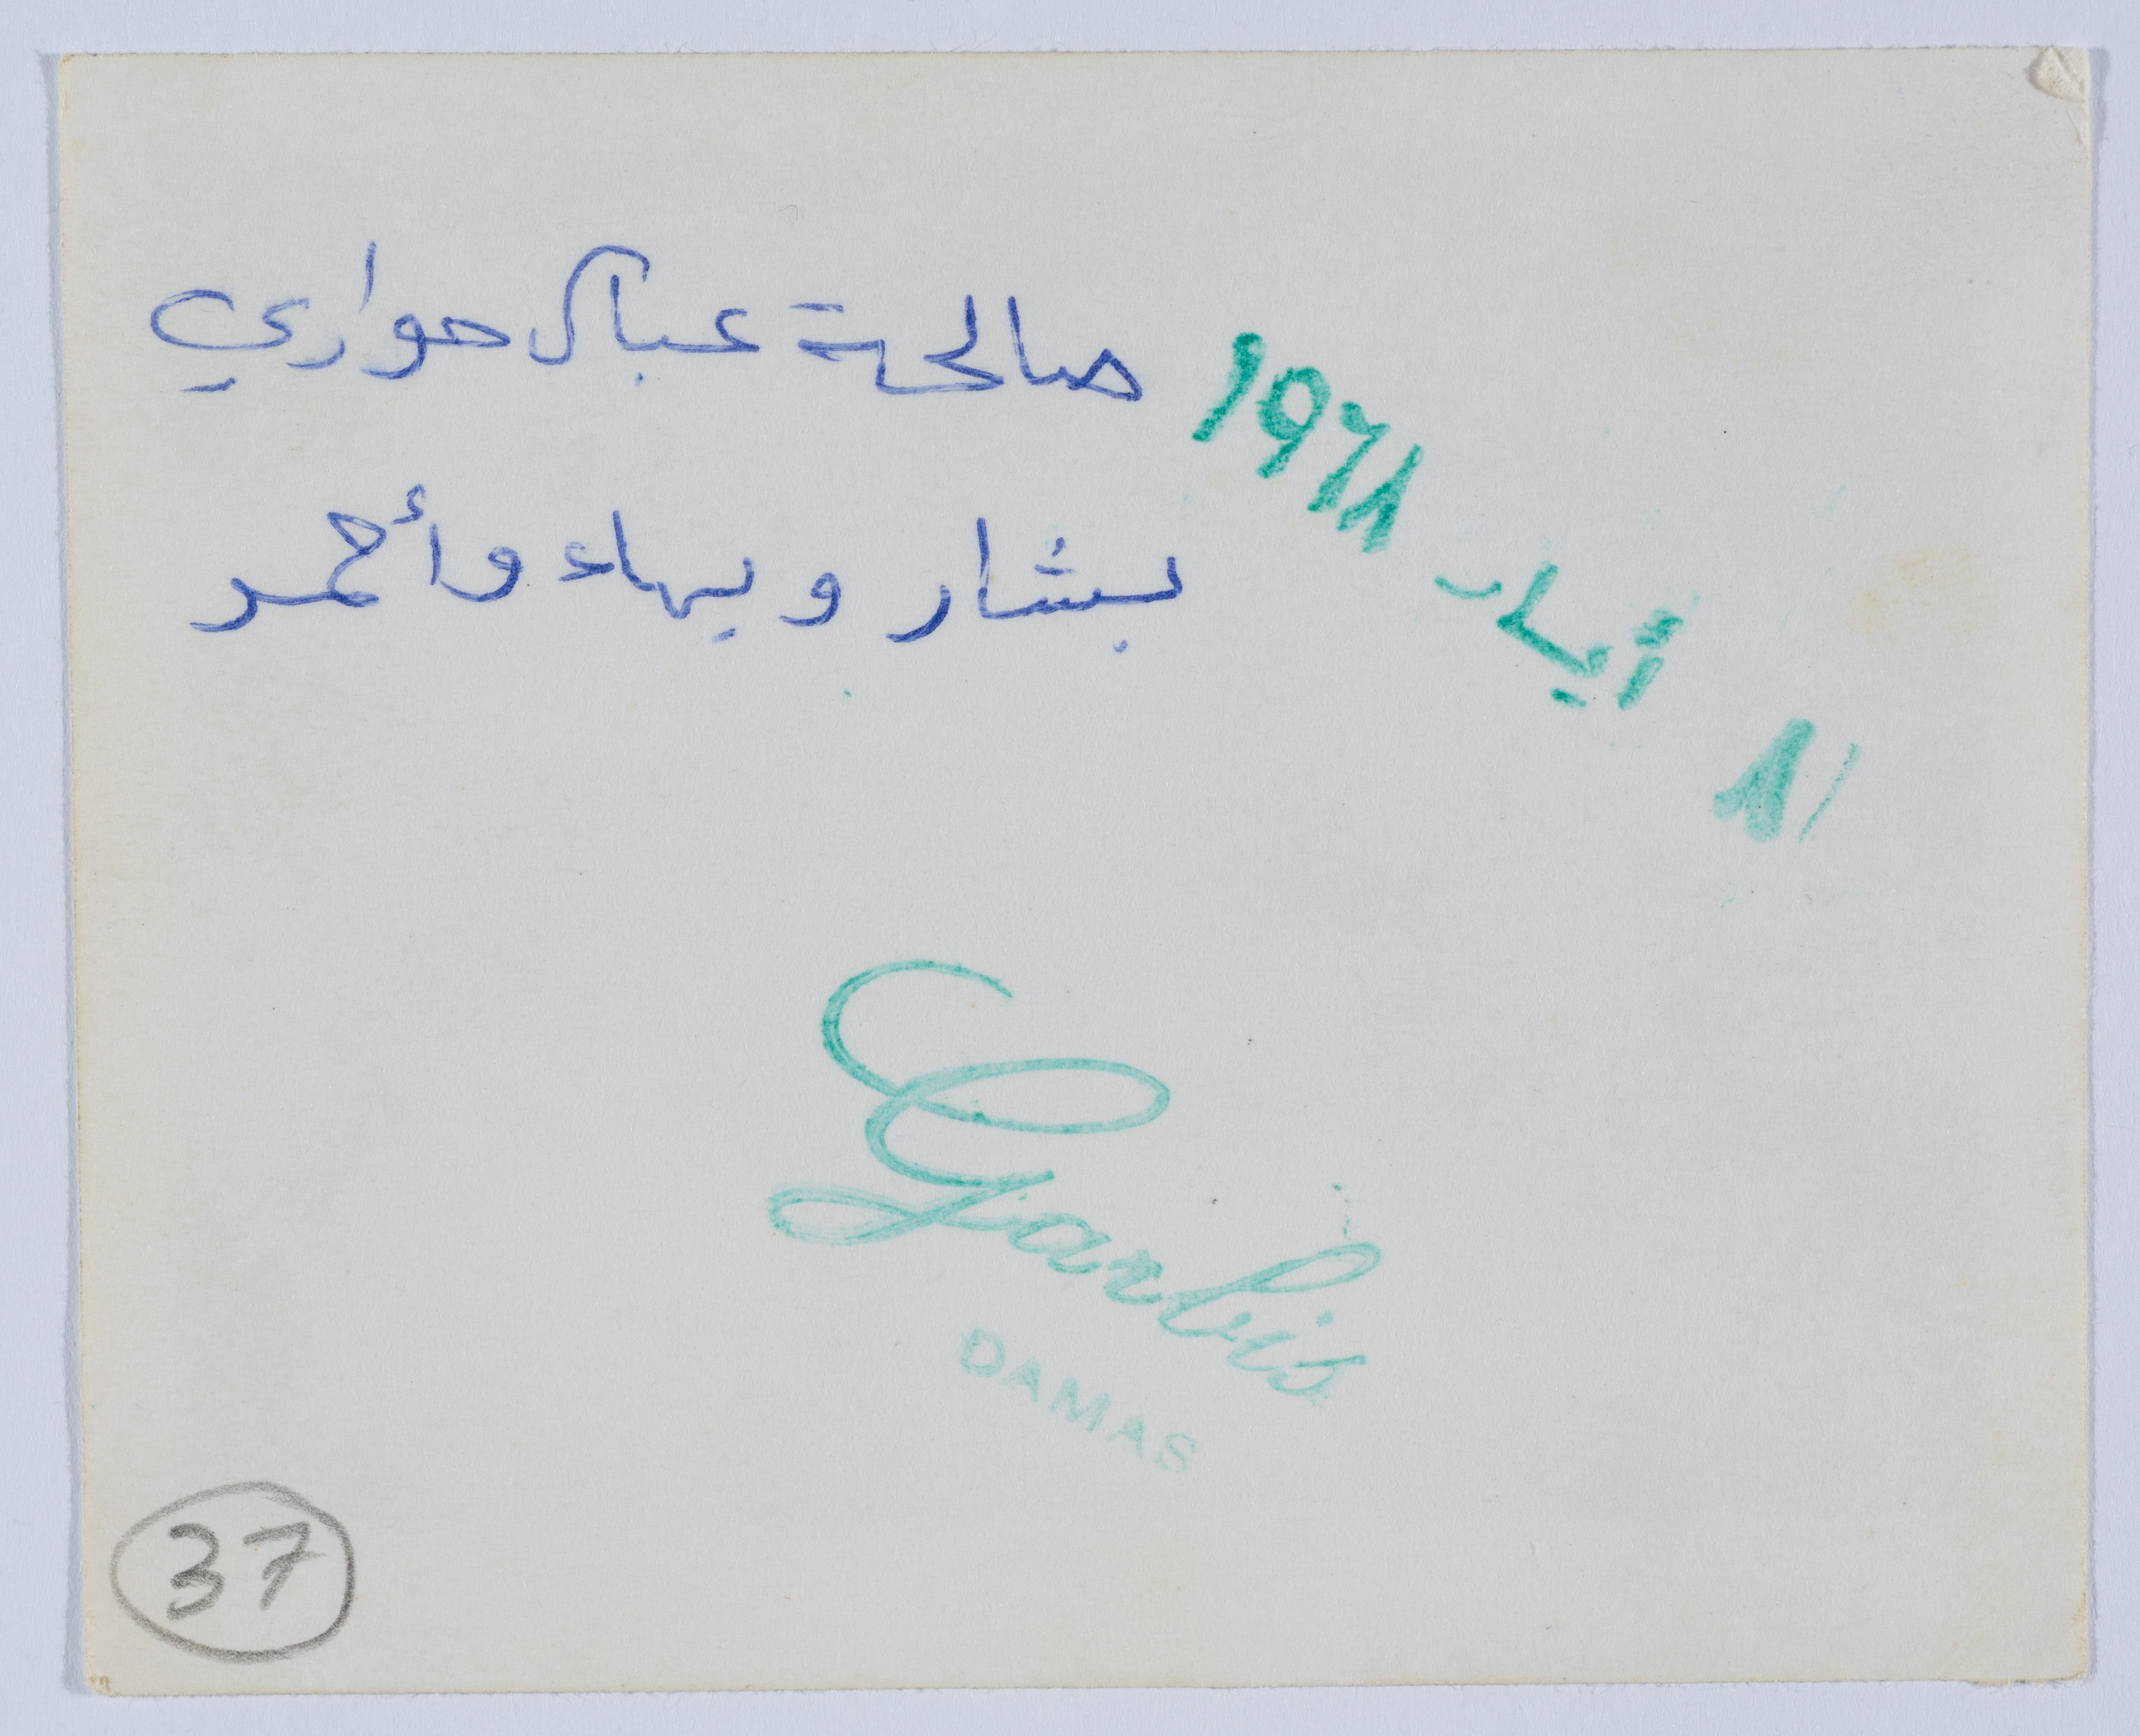 صالحة عباس حواري
بشار وبهاء وأحمد
٨ أيار ١٩٦٨
Garbis
DAMAS
37